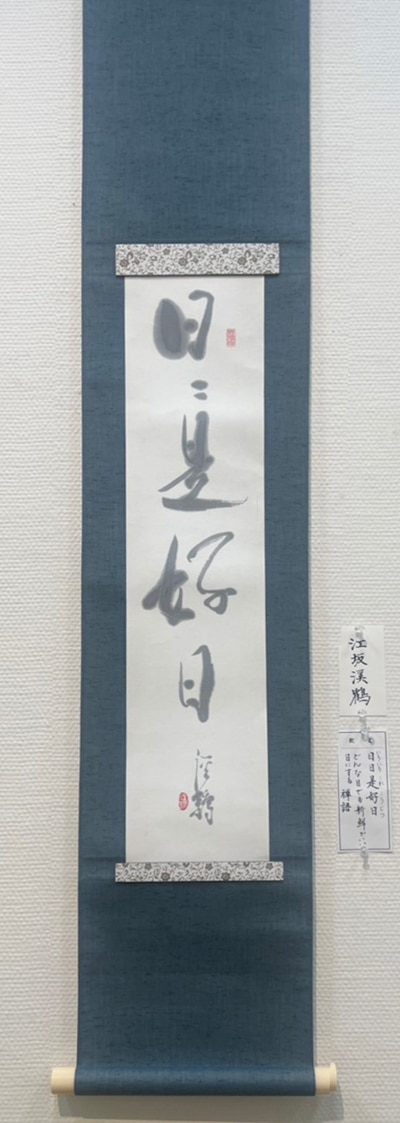 日〻是好日
溪鶴
江坂溪鶴
日日是好日
どんな日でも新鮮でいい
日にする 禅語